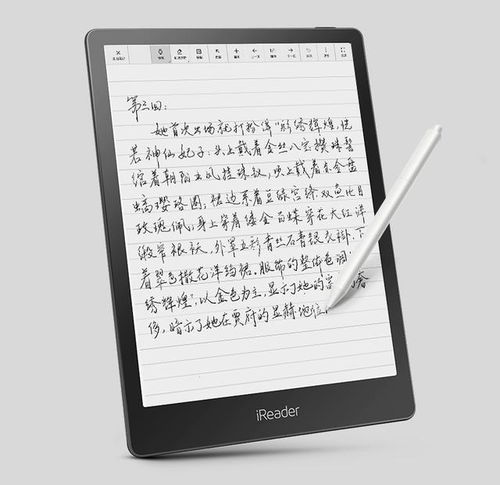 第三回:
她首次出场就打扮得"彩绣辉煌,恍
若神仙妃子:头上戴着金丝八宝攒珠髻
绾着朝阳五凤挂珠钗,项上戴着赤金盘
螭璎珞圈;裙边系着豆绿宫绦双鱼比目
玫瑰佩;身上穿着缕金百蝶穿花大红洋
缎窄裉袄,外罩五彩青丝石青银鼠褂,下
着翠色撒花洋绉裙。服饰的整体色调
绣辉煌",以金色为主,显示了她的 奢
侈,暗示了她在贾府的显赫地位。
iReader